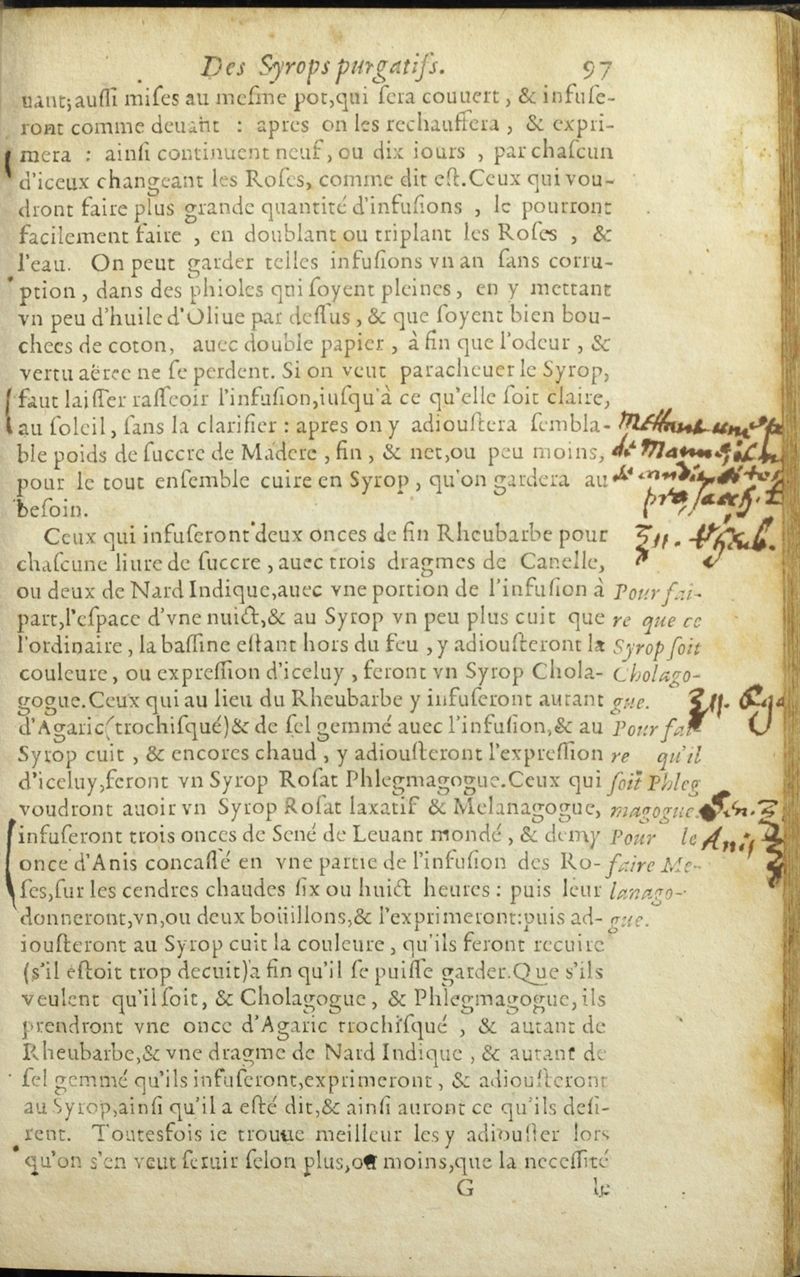 Des Syrops purgatifs. 97
uant;auſſi miſes au meſme pot,qui ſera couuert, & infuſe-
ront comme deuant : apres on les rechauffera, & expri-
mera : ainſi continuent neuf, ou dix iours, par chaſcun
d'iceux changeant les Roſes, comme dit eſt.Ceux qui vou-
dront faire plus grande quantité d'infuſions, le pourront
facilement faire, en doublant ou triplant les Roſes, &
l'eau. On peut garder telles infuſions vn an ſans corru-
ption, dans des phioles qui ſoyent pleines, en y mettant
vn peu d'huile d'Oliue par deſſus, & que ſoyent bien bou-
chees de coton, auec double papier, à fin que l'odeur, &
vertu aëree ne ſe perdent. Si on veut paracheuer le Syrop,
faut laiſſer raſſeoir l'infuſion,iuſqu'à ce qu'elle ſoit claire,
au ſoleil, ſans la clarifier : apres on y adiouſtera ſembla-
ble poids de ſuccre de Madere, fin, & net,ou peu moins,
pour le tout enſemble cuire en Syrop, qu'on gardera au
beſoin.
Ceux qui infuſeront deux onces de fin Rheubarbe pour
chaſcune liure de ſuccre, auec trois dragmes de Canelle,
ou deux de Nard Indique,auec vne portion de l'infuſion à
part,l'eſpace d'vne nuict,& au Syrop vn peu plus cuit que
l'ordinaire, la baſſine eſtant hors du feu, y adiouſteront la
couleure, ou expreſſion d'iceluy, feront vn Syrop Chola-
gogue.Ceux qui au lieu du Rheubarbe y infuſeront autant
d'Agaric(trochiſqué)& de ſel gemmé auec l'infuſion,& au
Syrop cuit, & encores chaud, y adiouſteront l'expreſſion
d'iceluy,feront vn Syrop Roſat Phlegmagogue.Ceux qui
voudront auoir vn Syrop Roſat laxatif & Melanagogue,
infuſeront trois onces de Sené de Leuant mondé, & demy
once d'Anis concaſſé en vne partie de l'infuſion des Ro-
ſes,ſur les cendres chaudes ſix ou huict heures : puis leur
donneront,vn,ou deux boüillons,& l'exprimeront:puis ad-
iouſteront au Syrop cuit la couleure, qu'ils feront recuire
(s'il eſtoit trop decuit)à fin qu'il ſe puiſſe garder.Que s'ils
veulent qu'il ſoit, & Cholagogue, & Phlegmagogue,ils
prendront vne once d'Agaric trochiſqué, & autant de
Rheubarbe,& vne dragme de Nard Indique, & autant de
ſel gemmé qu'ils infuſeront,exprimeront, & adiouſteront
au Syrop,ainſi qu'il a eſté dit,& ainſi auront ce qu'ils deſi-
rent. Toutesfois ie trouue meilleur les y adiouſter lors
qu'on s'en veut ſeruir ſelon plus,ou moins,que la neceſſité
G le
Pour fai-
re que ce
Syrop ſoit
Cholago-
gue.
Pour fai-
re qu'il
ſoit Phleg
magogue.
Pour le
faire Me-
lanago-
gue.